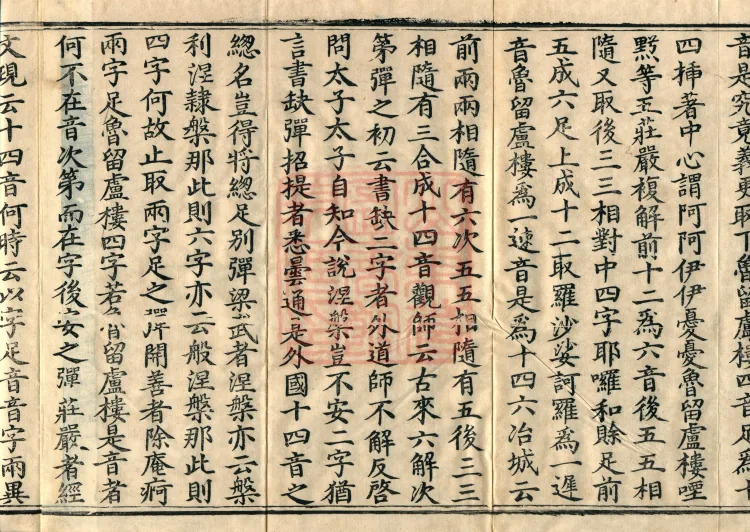 音是究竟義
四揷著中心謂阿阿伊伊憂憂魯留盧樓堙
黙等五莊嚴複解前十二爲六音後五五相
隨又取後三三相對中四字耶囉和賖足前
五成六足上成十二取羅沙娑訶羅爲一遲
音魯留盧樓爲一速音是爲十四六冶城云
前兩兩相隨有六次五五相隨有五後三三
相隨有三合成十四音觀師云古來六解次
第彈之初云書缺二字者外道師不解反啓
問太子太子自知今說涅槃豈不安二字猶
言書缺彈招提者悉曇通是外國十四音之
總名豈得將總足別彈梁武者涅槃亦云槃
利涅隸槃那此則六字亦云般涅槃那此則
四字何故止取兩字足之彈開善者除庵痾
兩字足魯留盧樓四字若留盧樓是音者
何不在音次第而在字後安之彈莊嚴者經
文現云十四音何時云以字足音音字兩異